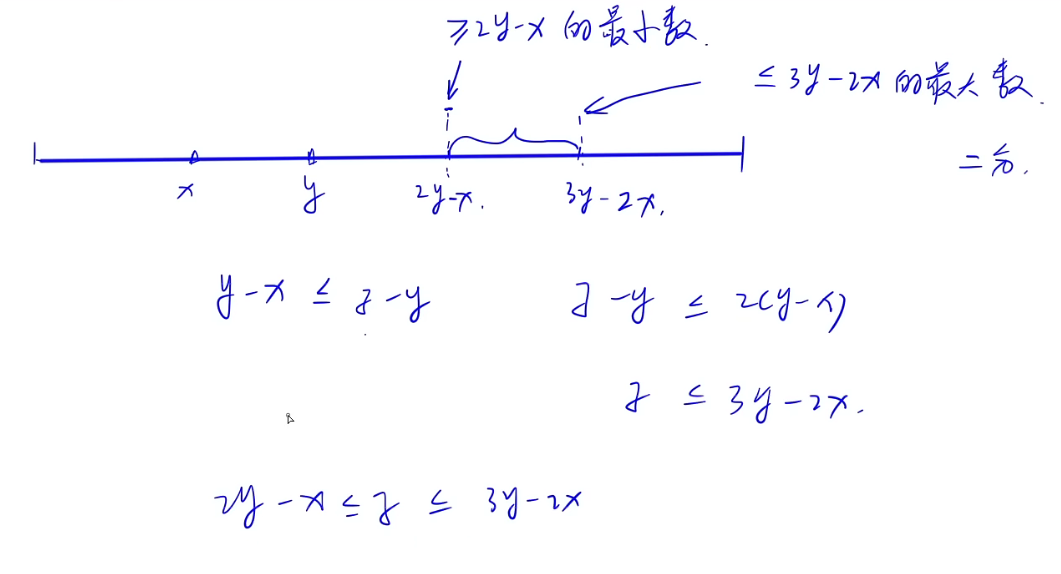 ≥2y-x 的最小数.
≤3y-2x的最大数.
=分.
x y 2y-x. 3y-2x.
y-x ≤ z-y z-y ≤ 2(y-x)
z ≤ 3y-2x.
2y-x ≤ z ≤ 3y-2x